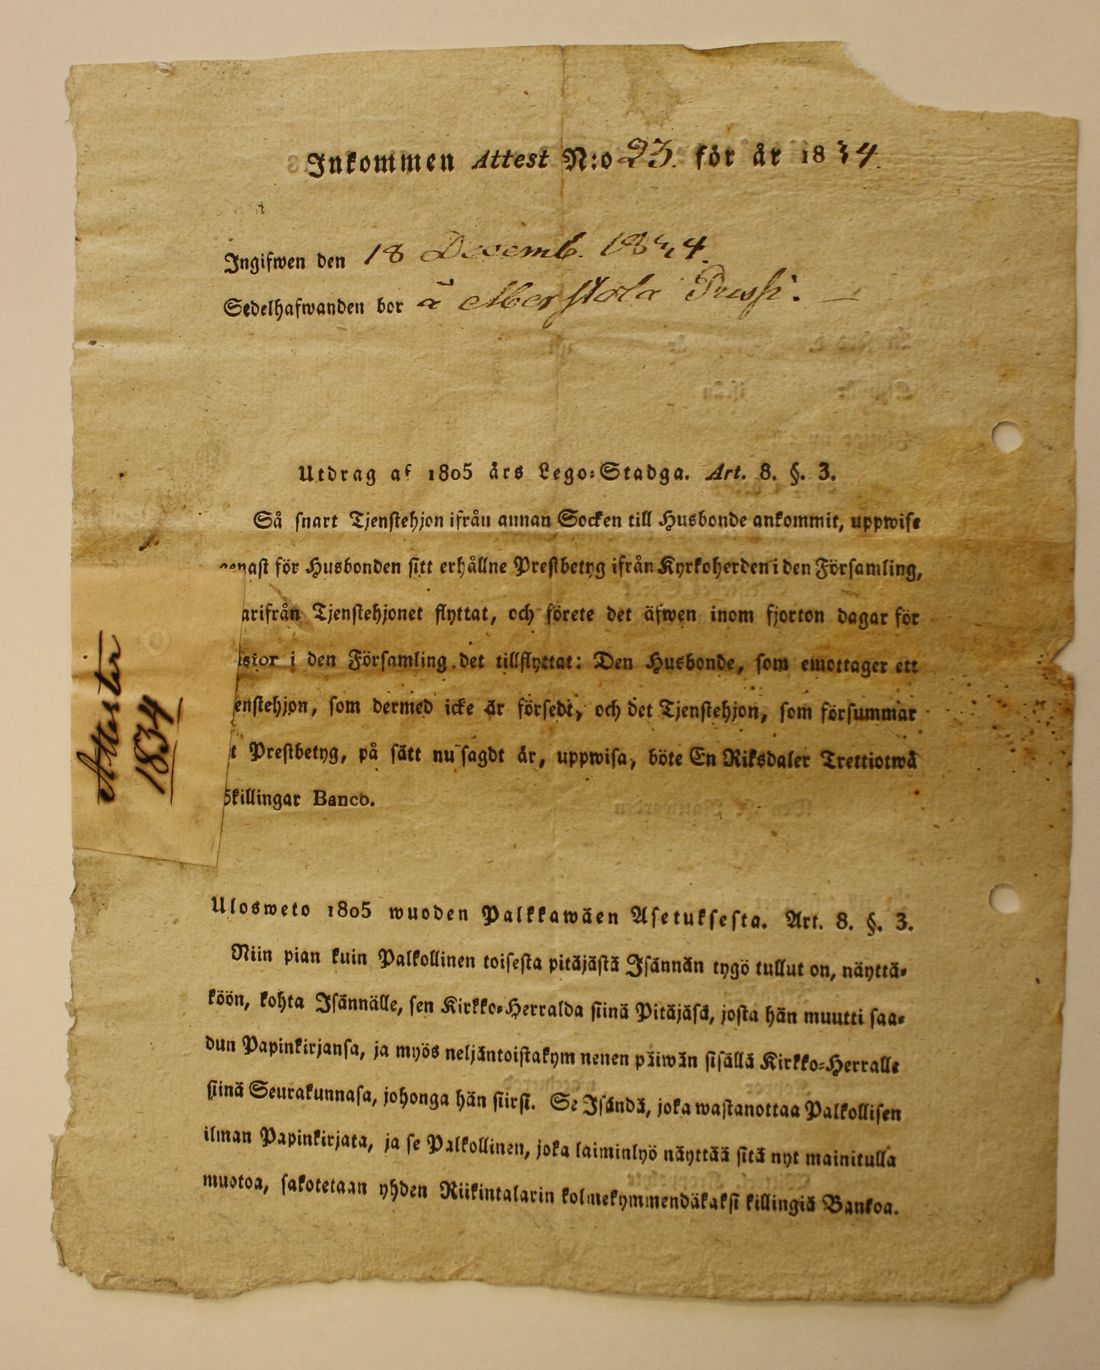 Inkommen Attest N:o 23. för år 1834.
Ingifwen den 18 Decemb. 1834.
Sedelhafwanden bor å
Utdrag af 1805 års Lego-Stadga. Art. 8. §. 3.
Så snart Tjenstehjon ifrån annan Socken till Husbonde ankommit, uppwise
genast för Husbonden sitt erhållne Prestbetyg ifrån Kyrkoherden i den Församling,
arifrån Tjenstehjonet flyttat, och förete det äfwen inom fjorton dagar för
stor i den Församling det tillflyttat: Den Husbonde, som emottager ett
enstehjon, som dermed icke är försedt, och det Tjenstehjon, som försummar
t Prestbetyg, på sätt nu sagdt är, uppwisa, böte En Riksdaler Trettiotwå
Skillingar Banco.
Attester
1834
Ulosweto 1805 wuoden Palkkawäen Asetuksesta. Art. 8. §. 3.
Niin pian kuin Palkollinen toisesta pitäjästä Isännän tygö tullut on, näyttä-
köön, kohta Isännälle, sen Kirkko-Herralda siinä Pitäjäsä, josta hän muutti saa-
dun Papinkirjansa, ja myös neljäntoistakym nenen päiwän sisällä Kirkko-Herralle
siinä Seurakunnasa, johonga hän siirsi. Se Isändä, joka wastanottaa Palkollisen
ilman Papinkirjata, ja se Palkollinen, joka laiminlyö näyttää sitä nyt mainitulla
muotoa, sakotetaan yhden Riikintalarin kolmekymmendäkaksi killingiä Bankoa.